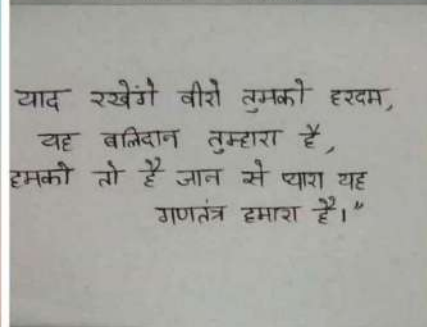 याद रखेंगे वीरो तुमको हरदम,
यह बलिदान तुम्हारा है,
हमको तो है जान से प्यारा यह
गणतंत्र हमारा है।"